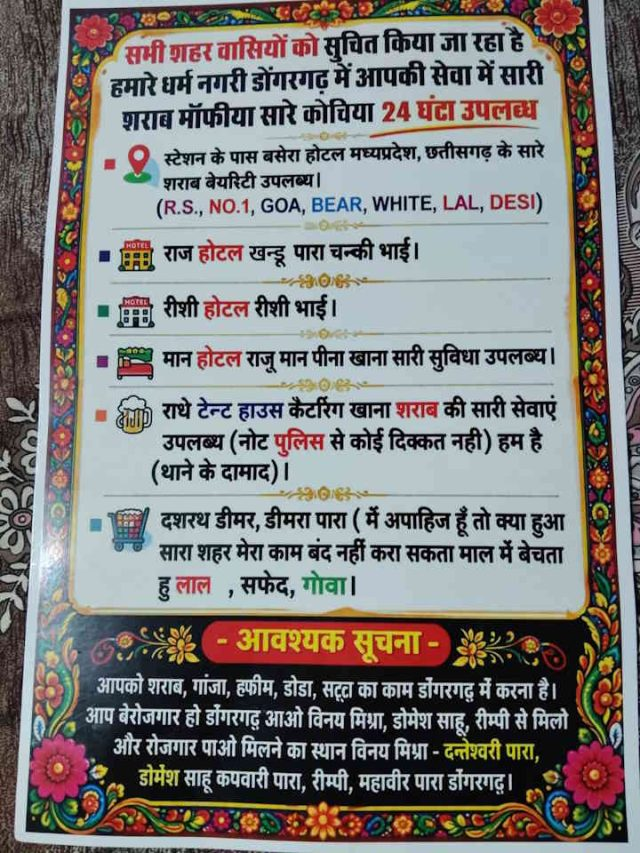 सभी शहर वासियों को सुचित किया जा रहा है
हमारे धर्म नगरी डोंगरगढ़ में आपकी सेवा में सारी
शराब मॉफीया सारे कोचिया 24 घंटा उपलब्ध
स्टेशन के पास बसेरा होटल मध्यप्रदेश, छतीसगढ़ के सारे
शराब बेयरिटी उपलब्ध।
(R.S., NO.1, GOA, BEAR, WHITE, LAL, DESI)
HOTEL
राज होटल खन्डू पारा चन्की भाई।
HOTEL
रीशी होटल रीशी भाई।
मान होटल राजू मान पीना खाना सारी सुविधा उपलब्ध।
राधे टेन्ट हाउस कैटरिंग खाना शराब की सारी सेवाएं
उपलब्ध (नोट पुलिस से कोई दिक्कत नही) हम है
(थाने के दामाद)।
दशरथ डीमर, डीमरा पारा ( में अपाहिज हूँ तो क्या हुआ
सारा शहर मेरा काम बंद नहीं करा सकता माल में बेचता
हु लाल , सफेद, गोवा।
- आवश्यक सूचना -
आपको शराब, गांजा, हफीम, डोडा, सट्टा का काम डोंगरगढ़ में करना है।
आप बेरोजगार हो डोंगरगढ़ आओ विनय मिश्रा, डोमेश साहू, रीम्पी से मिलो
और रोजगार पाओ मिलने का स्थान विनय मिश्रा - दन्तेश्वरी पारा,
डोमेंश साहू कपवारी पारा, रीम्पी, महावीर पारा डोंगरगढ़।